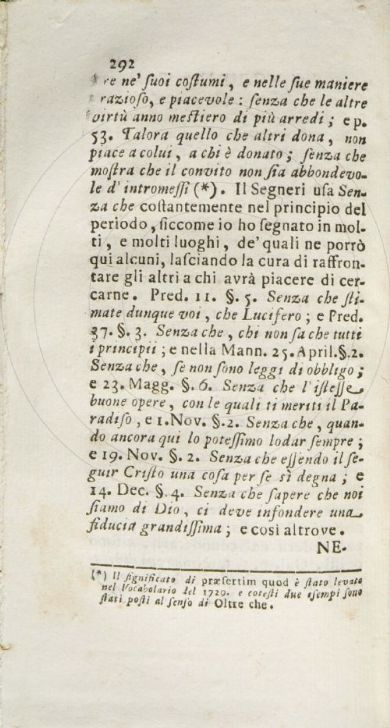 292
re ne' ſuoi coſtumi, e nelle ſue maniere
razioſo, e piacevole: ſenza che le altre
virtù anno meſtiero di più arredi; e p.
53. Talora quello che altri dona, non
piace a colui, a chi è donato; ſenza che
moſtra che il convito non ſia abbondevo-
le d' intromeſſi (*). Il Segneri uſa Sen-
za che coſtantemente nel principio del
periodo, ſiccome io ho ſegnato in mol-
ti, e molti luoghi, de' quali ne porrò
qui alcuni, laſciando la cura di raffron-
tare gli altri a chi avrà piacere di cer-
carne. Pred. 11. §. 5. Senza che ſti-
mate dunque voi, che Lucifero; e Pred.
37. §. 3. Senza che, chi non ſa che tutti
i principii; e nella Mann. 25. April. §. 2.
Senza che, ſe non ſono leggi di obbligo;
e 23. Magg. §. 6. Senza che l' iſteſſe
buone opere, con le quali ti meriti il Pa-
radiſo, e 1. Nov. §. 2. Senza che, quan-
do ancora qui lo poteſſimo lodar ſempre;
e 19. Nov. §. 2. Senza che eſſendo il ſe-
guir Criſto una coſa per ſe sì degna; e
14. Dec. §. 4. Senza che ſapere che noi
ſiamo di Dio, ci deve infondere una
fiducia grandiſſima; e così altrove.
NE-
(*) Il ſignificato di præſertim quod è ſtato levato
nel Vocabolario del 1729. e coteſti due eſempi ſono
ſtati poſti al ſenſo di Oltre che.